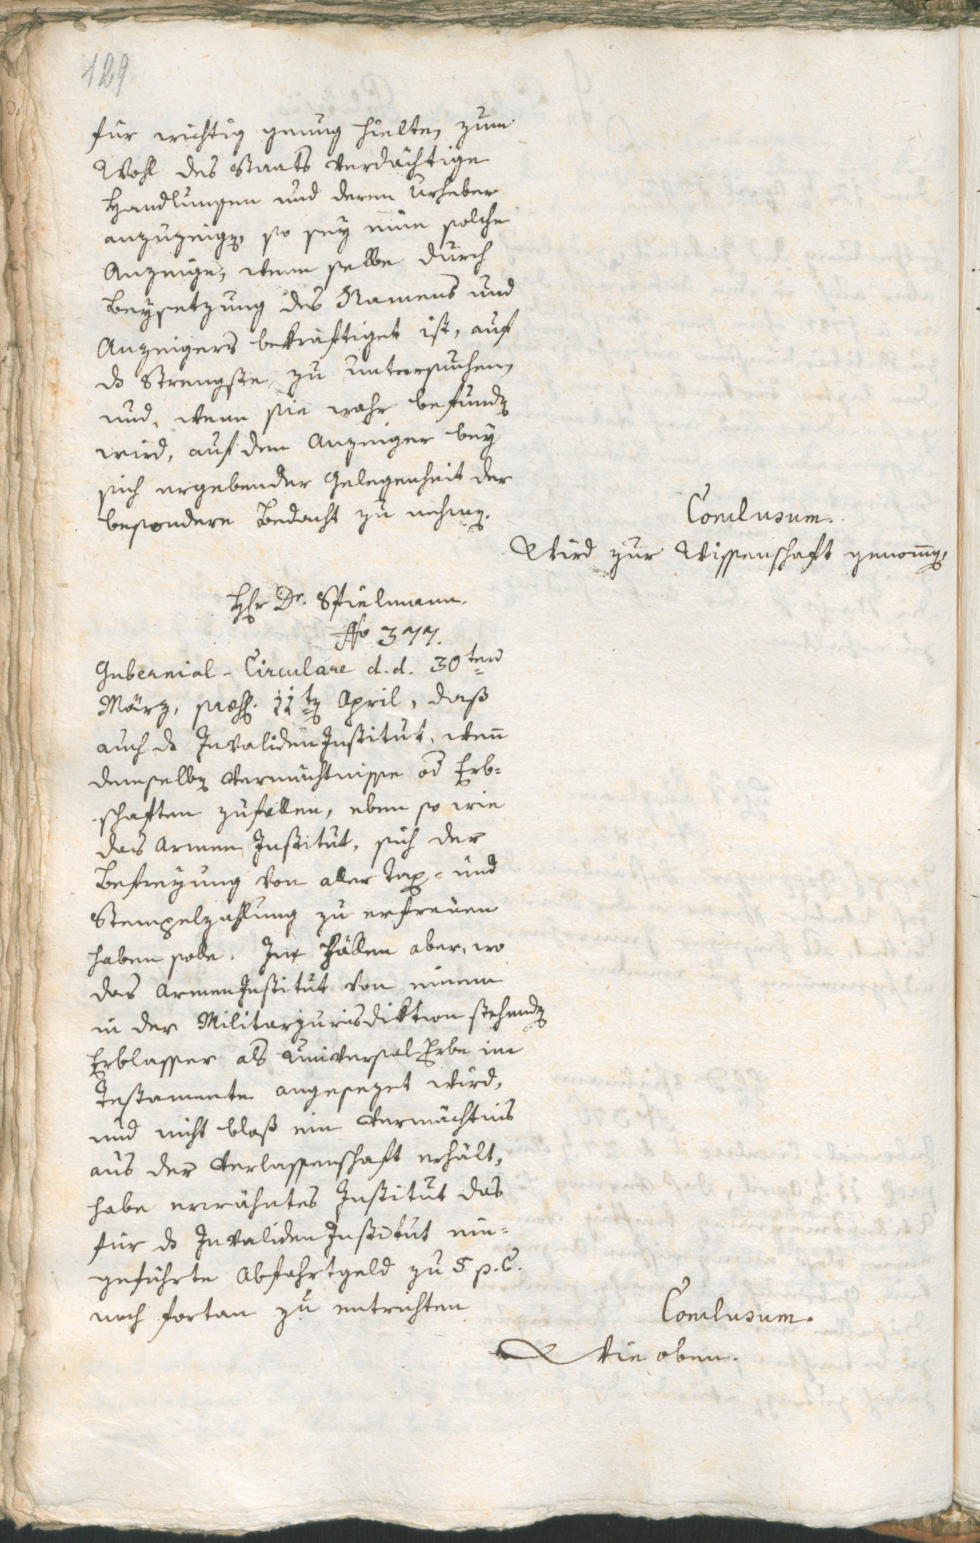 129
für wichtig genug hielten, zum
Wohl des Staats verdächtige
Handlungen und deren Urheber
anzuzeigen, so sey eine solche
Anzeige, wenn selbe durch
Beysetzung des Namens und
Anzeigers bekräftiget ist, auf
ds Strengste zu untersuchen,
und, wenn sie wahr befunden
wird, auf den Anzeiger bey
sich ergebender Gelegenheit der
besondere Bedacht zu nehmen.
Conclusum.
Wird zur Wissenschaft genommen.
Hr Dr. Stielmann.
No 377.
Gubernial-Circulare d. d. 30ten
März, praes. 11ten April, daß
auch ds Invaliden Institut, wenn
demselben Vermächtnisse od Erb-
schaften zufallen, eben so wie
das Armen Institut, sich der
Befreyung von aller Tax- und
Stempelzahlung zu erfreuen
haben solle. In Fällen aber, wo
das Armen Institut von einem
in der Militarjurisdiktion stehenden
Erblasser als Universal Erbe im
Testamente angesezet wird,
und nicht bloß ein Vermächtnis
aus der Verlassenschaft erhält,
habe erwähntes Institut das
für ds Invaliden Institut ein-
geführte Abfahrtgeld zu 5 p. C.
noch fortan zu entrichten
Conclusum.
Wie oben.